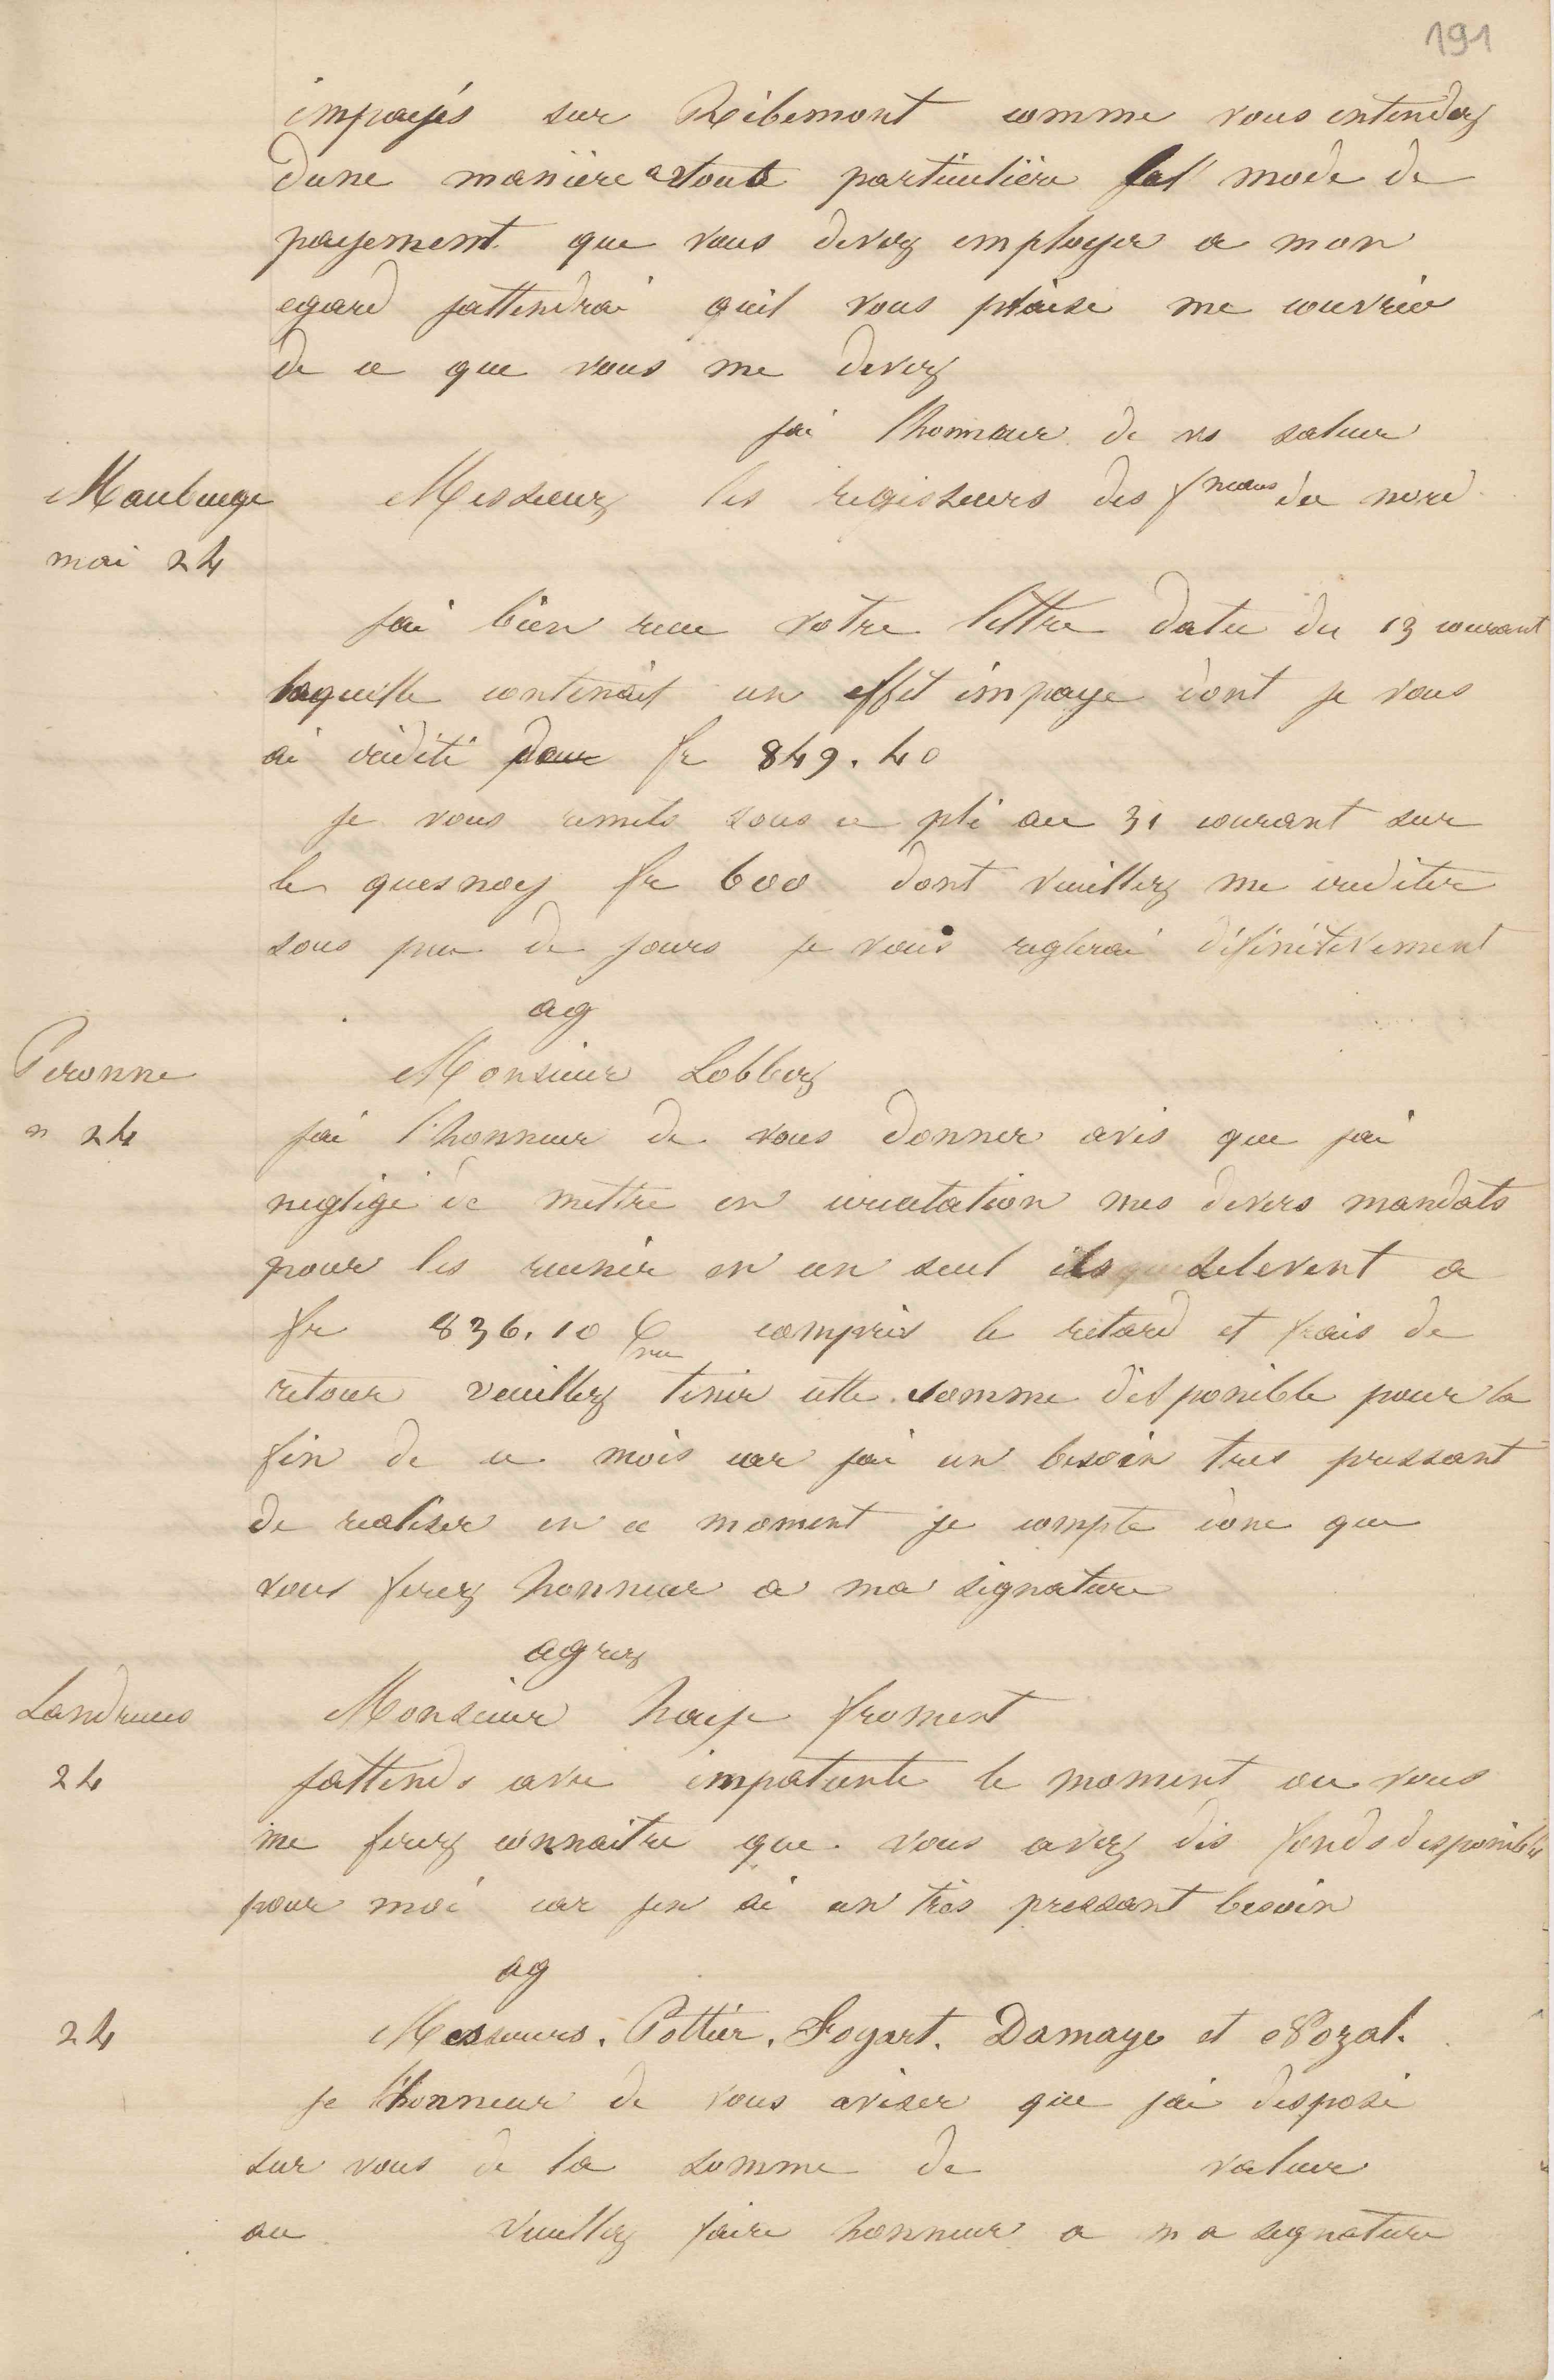 191
impayés sur Ribemont comme vous entendez
dune maniere toute particuliere le mode de
payement que vous devez employer a mon
egard jattendrai quil vous plaise me couvrir
de ce que vous me devez
jai lhonneur de vs saluer
Maubeuge Messieurs les regisseurs des fneaux du nord
mai 24
jai bien recu votre lettre datee du 13 courant
laquelle contenait un effet impaye dont je vous
ai crédité pour fr 849.40
je vous remets sous ce pli au 31 courant sur
le quesnoy fr 600 dont veuillez me crediter
sous peu de jours je vous reglerai définitivement
ag
Peronne Monsieur Lobbez
" 24 jai l'honneur de vous donner avis que jai
negligé de mettre en circulation mes divers mandats
pour les reunir en un seul ils selevent a
fr 836.10 compris le retard et frais de
retour veuillez tenir cette somme disponible pour la
fin de ce mois car jai un besoin tres pressant
de realiser en ce moment je compte donc que
vous ferez honneur a ma signature
agrez
Landrecies Monsieur froment
24 jattends avec impatiente le moment ou vous
me ferez connaitre que vous avez des fonds disponible
pour moi car jen ai un très pressant besoin
ag
24 Messieurs. Pottier. Fogart. Damaye et Nozal.
je lhonneur de vous aviser que jai disposé
sur vous de la somme de valeur
au veuillez faire honneur a ma signature